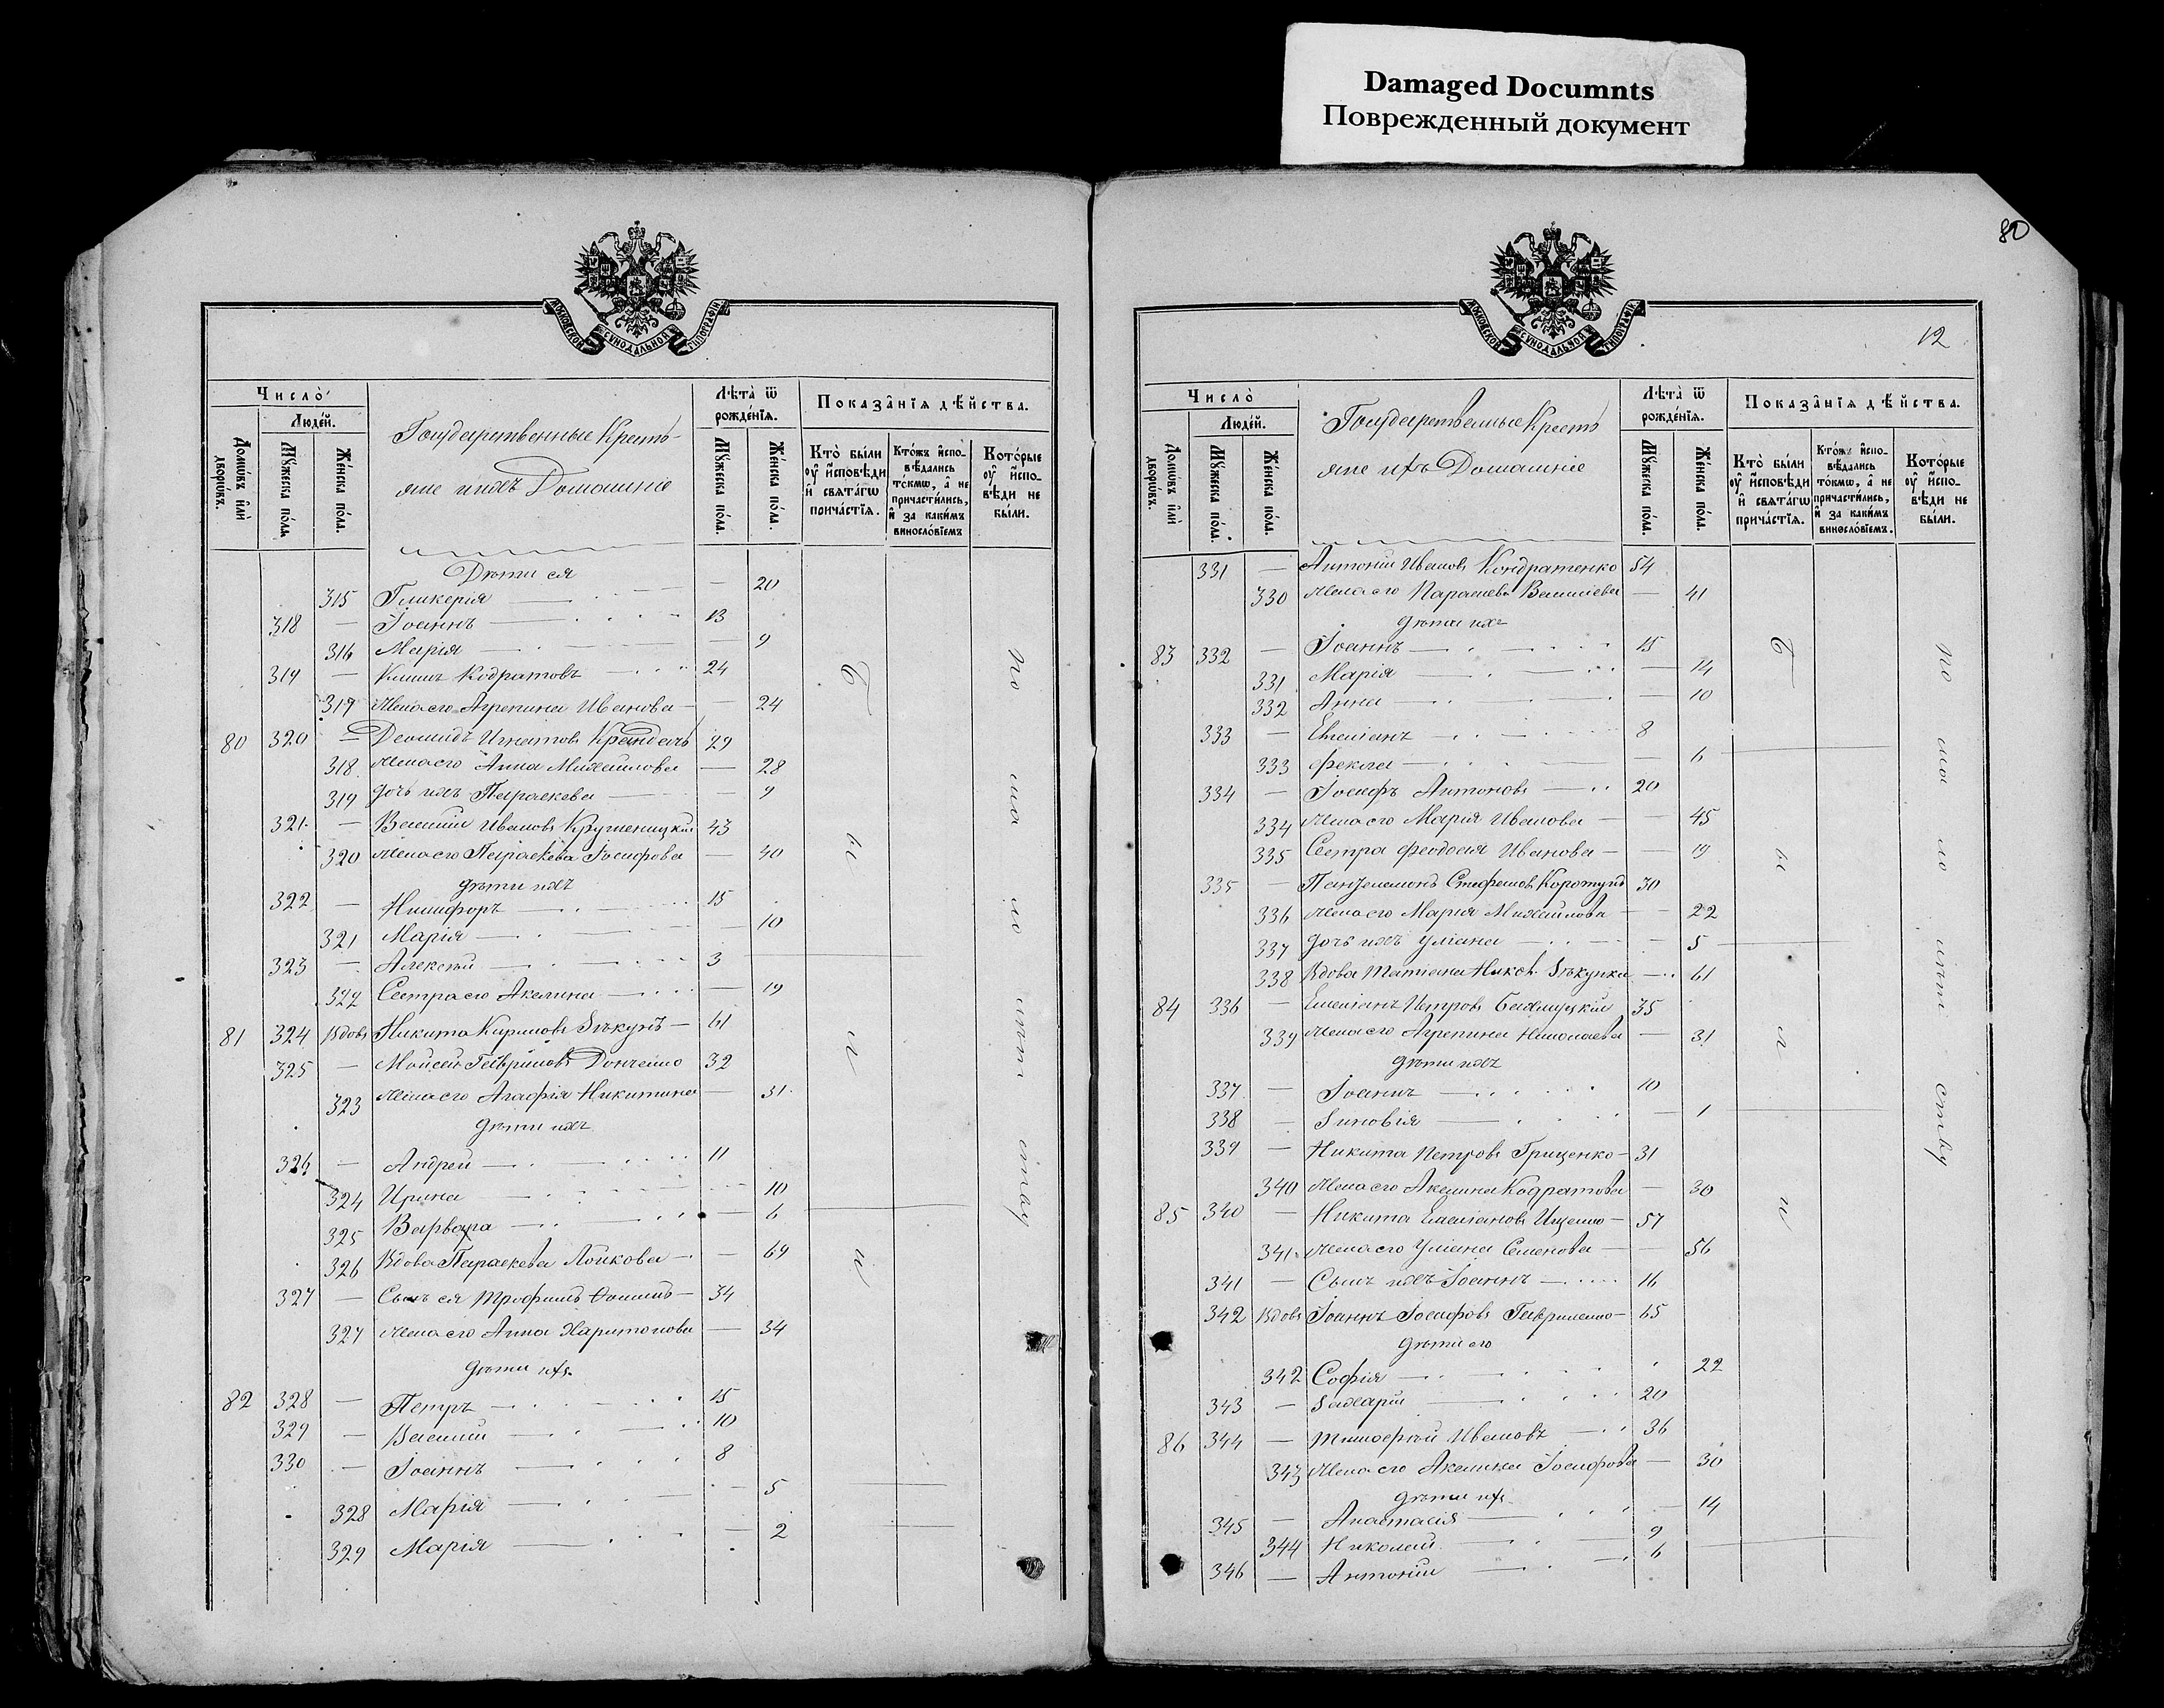 Damaged Documnts
Поврежденный документ
80
МОСКОВСКОЙ СУНОДАЛЬНОЙ ТИПОГРАФІИ
Число̀
Людей.
Домѡвъ и҆лѝ дворѡвъ.
Мꙋжеска по́ла.
Же́нска по́ла.
Государственные Кресть-
яне и ихъ Домашніе
Лѣта̀ ѿ рожде́нїѧ.
Мꙋжеска по́ла.
Же́нска по́ла.
Показа̑нїѧ дѣ́йства.
Кто̀ бы́ли ᲂу҆ и҆сповѣди и҆ свѧта́гѡ прича́стїѧ.
Кто́жъ и҆спо-вѣ́дались то́кмѡ, а҆ не причасти́лись, и҆ за каки́мъ винослóвїемъ
Кото́рые ᲂу҆ и҆спо-вѣ́ди не бы́ли.
Дѣти ея
315 Гликерія — 20
318 — Іоаннъ 13
316 Марія — 9
319 — Климъ Кодратовъ 24
317 Жена его Агрепина Иванова — 24
80 320 — Деомидъ Игнатовъ 29
318 Жена его Анна Михайлова — 28
319 Дочь ихъ Параскева — 9
321 — Василій Ивановъ Кружницкій 43
320 Жена его Параскева Іосифова — 40
Дѣти ихъ
322 — Никифоръ 15
321 Марія — 10
323 — Алексѣй 3
322 Сестра его Акелина — 19
81 324 Вдовъ Никита Кириловъ Ѕѣкунъ 61
325 — Моисей Гавриловъ Донченко 32
323 Жена его Агафія Никитина — 31
Дѣти ихъ
326 — Андрей 11
324 Ирина — 10
325 Варвара — 6
326 Вдова Параскева Лойкова — 69
327 — Сынъ ея Трофимъ Фоминъ 34
327 Жена его Анна Харитонова — 34
Дѣти ихъ
82 328 — Петръ 15
329 — Василій 10
330 — Іоаннъ 8
328 Марія — 5
329 Марія — 2
Б
ы
л
и
по ма ло лѣт ству
МОСКОВСКОЙ СУНОДАЛЬНОЙ ТИПОГРАФІИ
12
Число̀
Людей.
Домѡвъ и҆лѝ дворѡвъ.
Мꙋжеска по́ла.
Же́нска по́ла.
Государственные Кресть
яне ихъ Домашніе
Лѣта̀ ѿ рожде́нїѧ.
Мꙋжеска по́ла.
Же́нска по́ла.
Показа̑нїѧ дѣ́йства.
Кто̀ бы́ли ᲂу҆ и҆сповѣди и҆ свѧта́гѡ прича́стїѧ.
Кто́жъ и҆спо-вѣ́дались то́кмѡ, а҆ не причасти́лись, и҆ за каки́мъ винослóвїемъ.
Кото́рые ᲂу҆ и҆спо-вѣ́ди не бы́ли.
331 — Антоній Ивановъ Кондратенко 54
330 Жена его Параскева Васильева — 41
Дѣти ихъ
83 332 — Іоаннъ 15
331 Марія — 14
332 Анна — 10
333 — Емеліанъ 8
333 Фекла — 6
334 — Іосифъ Антоновъ 20
334 Жена его Марія Иванова — 45
335 Сестра Феодосія Иванова — 19
335 — Пантелеимонъ Стефановъ Коротунъ 30
336 Жена его Марія Михайлова — 22
337 Дочь ихъ Уліана — 5
338 Вдова Татіана Ѕѣкунка — 61
84 336 — Емеліанъ Петровъ 35
339 Жена его Агрепина Николаева — 31
Дѣти ихъ
337 — Іоаннъ 10
338 — Ѕиновія — 1
339 — Никита Петровъ Гриценко 31
340 Жена его Акелина Кодратова — 30
85 340 — Никита Емеліановъ Ищенко 57
341 Жена его Уліана Семенова — 56
341 — Сынъ ихъ Іоаннъ 16
342 Вдовъ Іоаннъ Іосифовъ Гавриленко 65
Дѣти его
342 Софія 22
343 — Ѕахарій 20
86 344 — Тимоѳей Ивановъ 36
343 Жена его Акелина Іосифова — 30
Дѣти ихъ
345 — Анастасія — 14
344 Николай 9
346 — Антоній 6
Б
ы
л
и
по ма ло лѣт ству